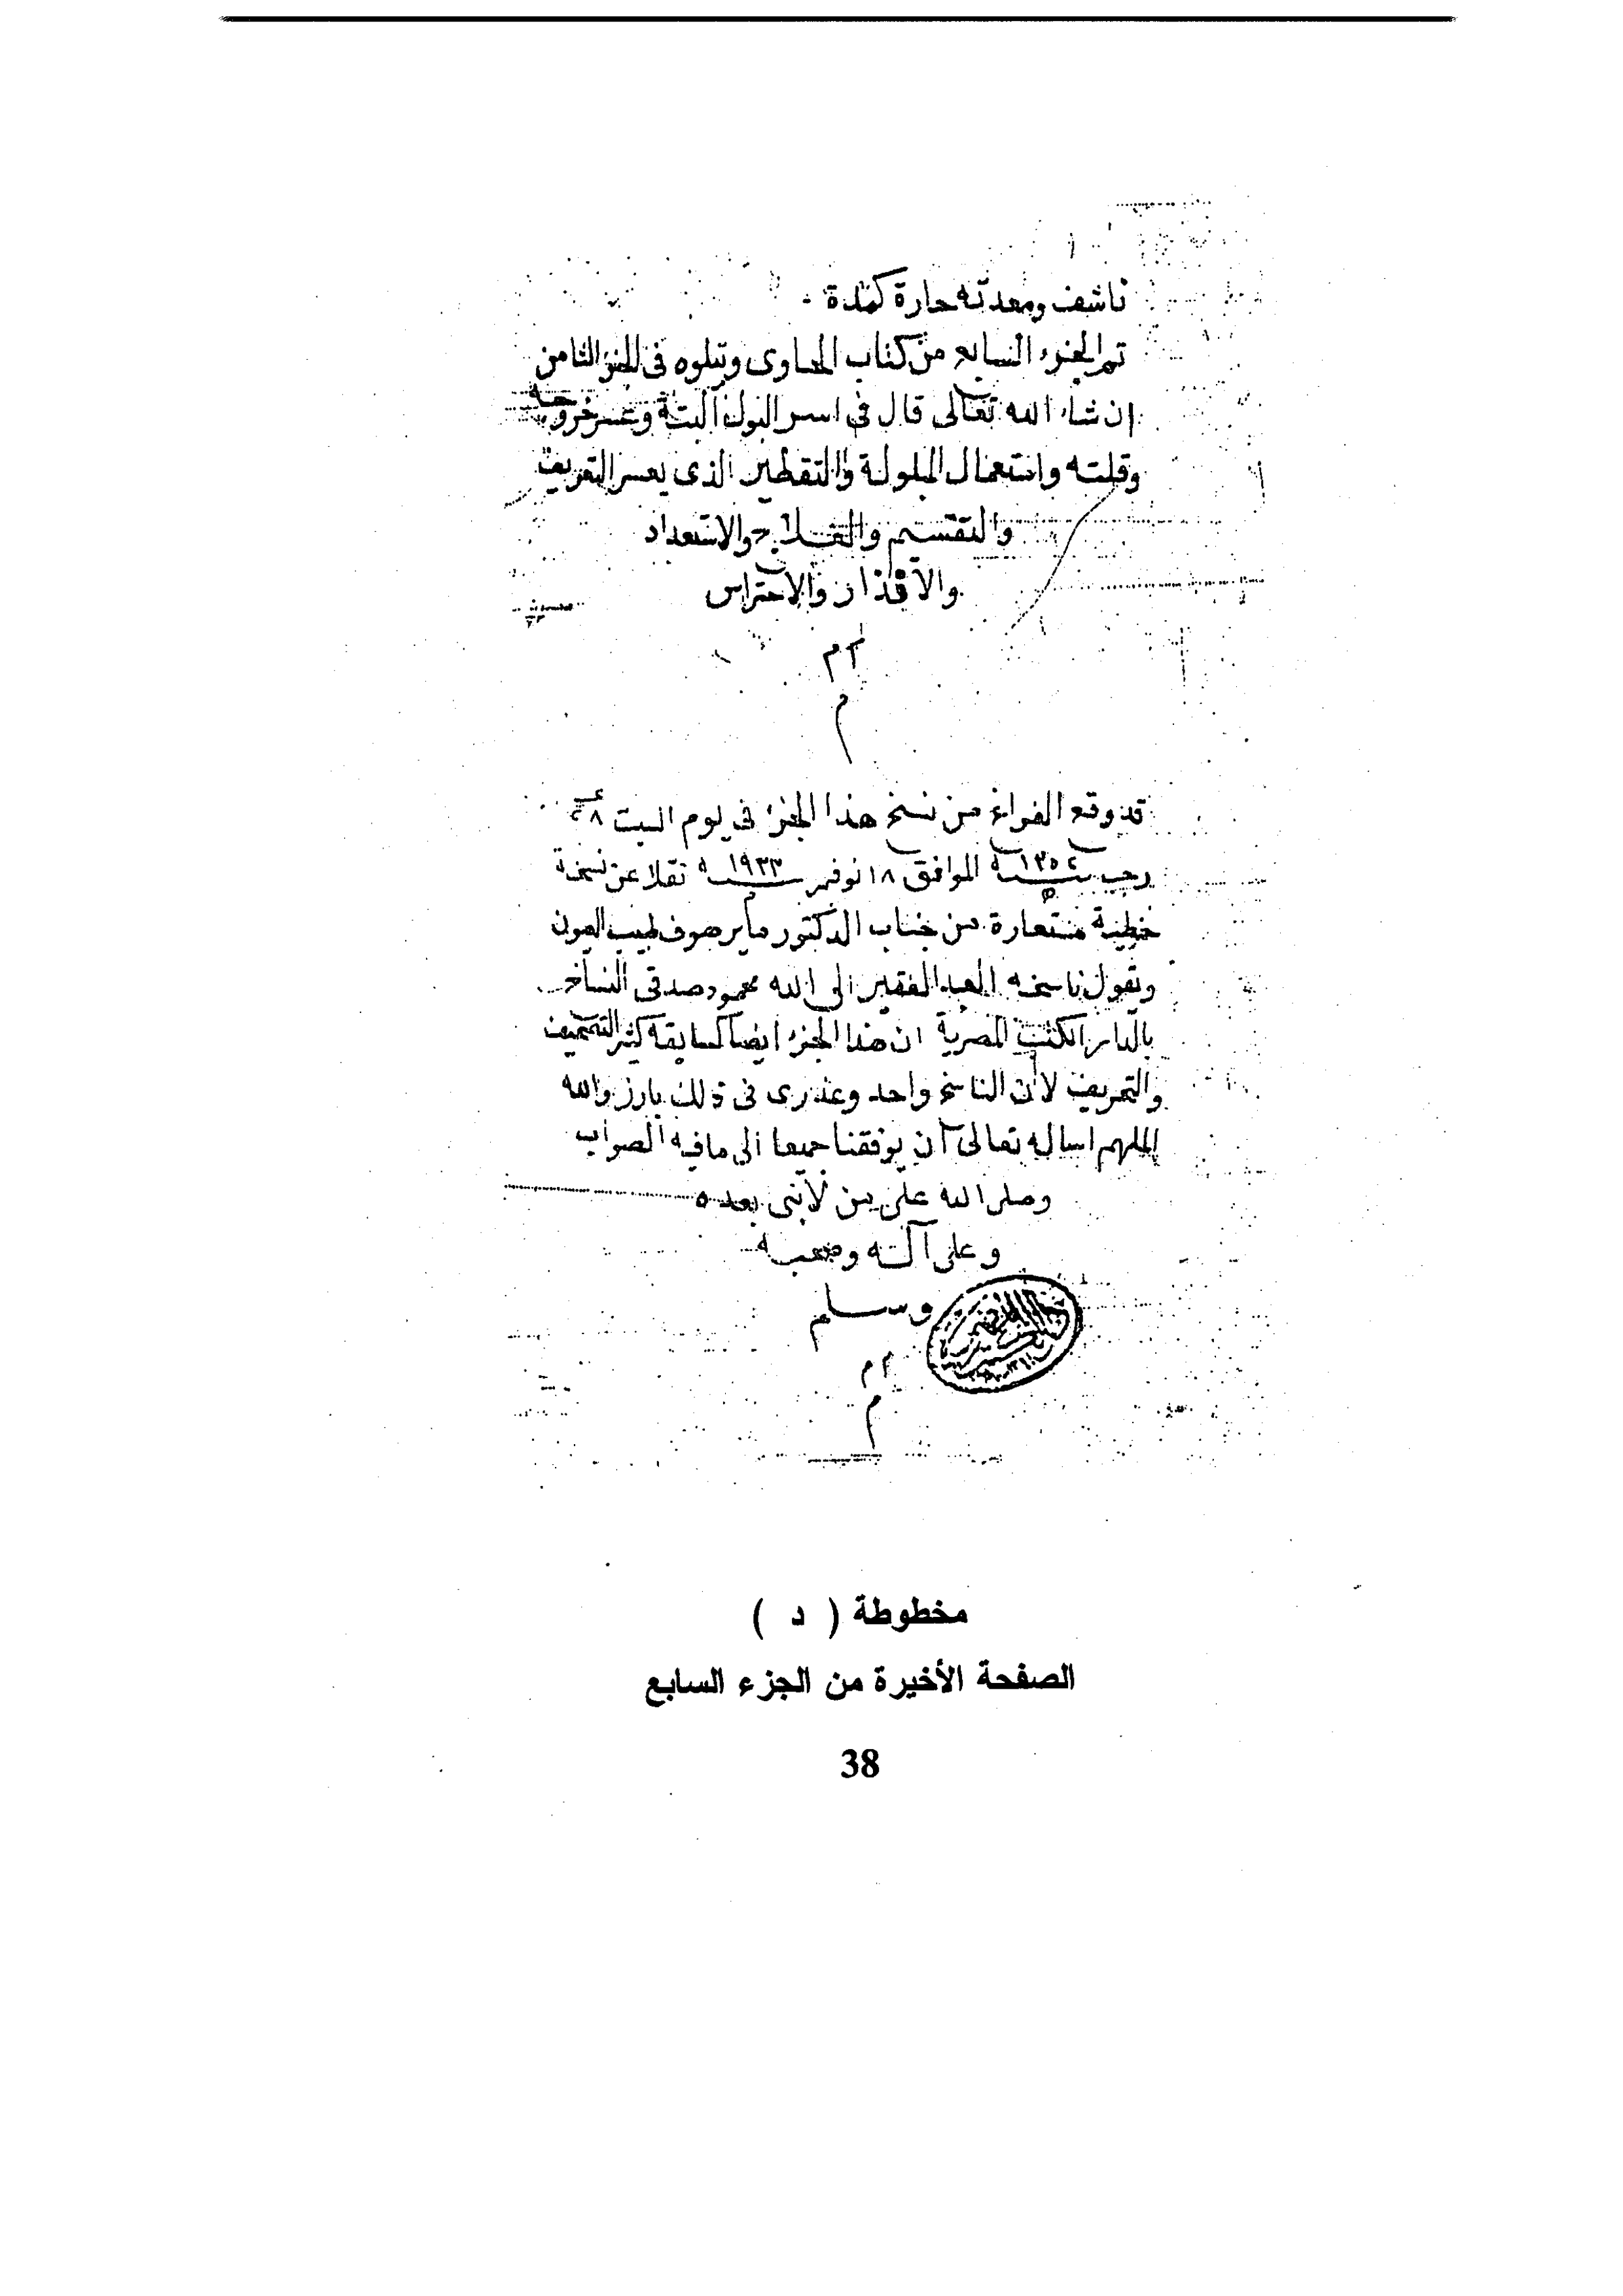 ناشف ومعدته حارة كمدة -
تم الجزء السابع من كتاب الحاوى ويتلوه فى الجزء الثامن
ان شاء الله تعالى قال فى اسر البول البتة وعسر خروجه
وقلته واستعمال المبولة والتقطير الذى يعسر التعريف
والتقسيم والعلاج والاستعداد
والاقذار والاحتراس
ام
م
قد وقع الفراغ من نسخ هذا الجزء فى يوم السبت
رجب سنة الموافق ١٨ نوفمبر سنة ١٩٣٣ نقلا عن نسخة
خطية مستعارة من جناب الدكتور مايرهوف طبيب العيون
ويقول ناسخه العبد الفقير الى الله محمود صدقى النساخ
بالدار الكتب المصرية ان هذا الجزء ايضا كسابقه كثير التصحيف
والتحريف لأن الناسخ واحد وعذرى فى ذلك بارز والله
الملهم اساله تعالى أن يوفقنا جميعا الى ما فيه الصواب
وصلى الله على من لا نبى بعده
وعلى آله وصحبه
وسلم
ام
م
مخطوطة ( د )
الصفحة الأخيرة من الجزء السابع
38